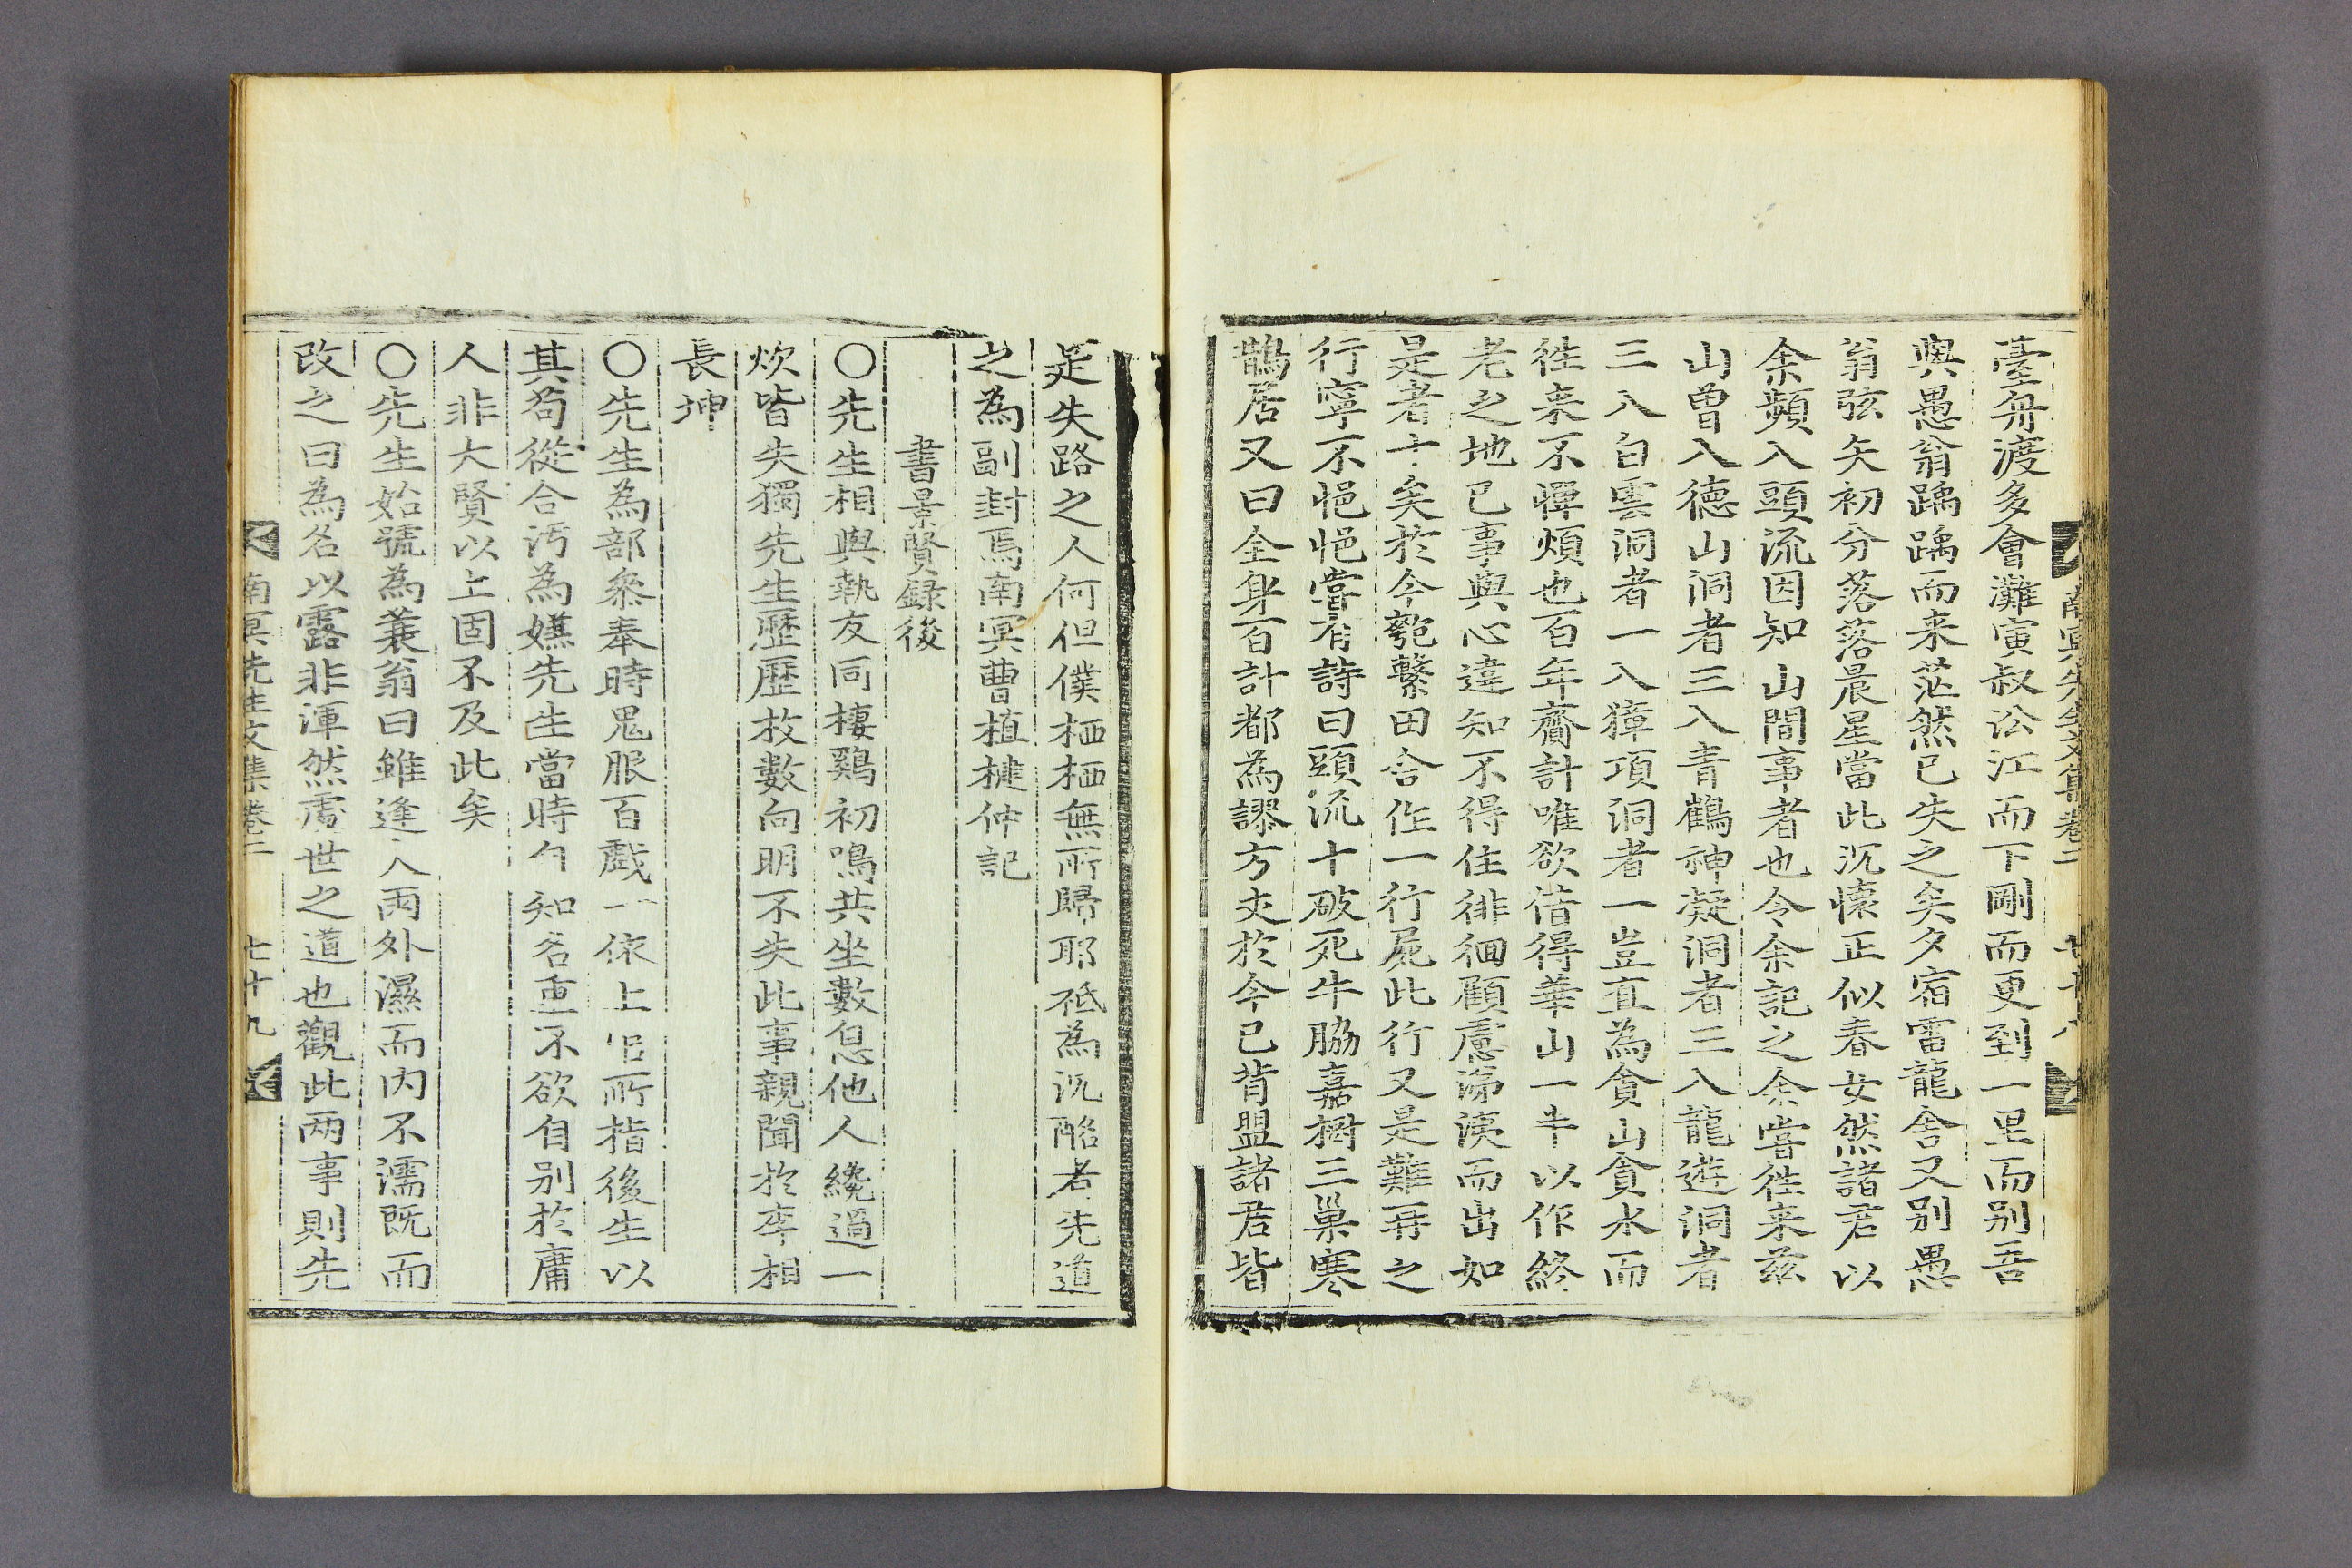 南冥先生文集卷二 七十八
臺舟渡多會灘寅叔㳂江而下剛而更到一里而别吾
與愚翁踽踽而来茫然已失之矣夕宿雷龍舍又别愚
翁弦矢初分落落晨星當此沉懷正似春女然諸君以
余頻入頭流因知山間事者也令余記之余嘗徃来兹
山曾入德山洞者三入青鶴神凝洞者三入龍遊洞者
三入白雲洞者一入獐項洞者一豈直為貪山貪水而
徃来不憚煩也百年齎計唯欲借得華山一半以作終
老之地已事與心違知不得住徘徊顧慮涕洟而出如
是者十矣於今匏繫田舍作一行屍此行又是難再之
行寧不悒悒嘗有詩曰頭流十破死牛脇嘉樹三巢寒
鵲居又曰全身百計都為謬方丈於今已背盟諸君皆
是失路之人何但僕栖栖無所歸耶秪為沉酩者先道
之為副封焉南冥曹植楗仲記
書景賢録後
〇先生相與執友同棲鷄初鳴共坐數息他人纔過一
炊皆失獨先生歷歷枚數向明不失此事親聞於李相
長坤
〇先生為部叅奉時鬼服百戲一依上官所指後生以
其苟從合汚為嫌先生當時句知名重不欲自别於庸
人非大賢以上固不及此矣
〇先生始號為蓑翁曰雖逢入雨外濕而内不濡既而
改之曰為名以露非渾然處世之道也觀此两事則先
南冥先生文集卷二 七十九